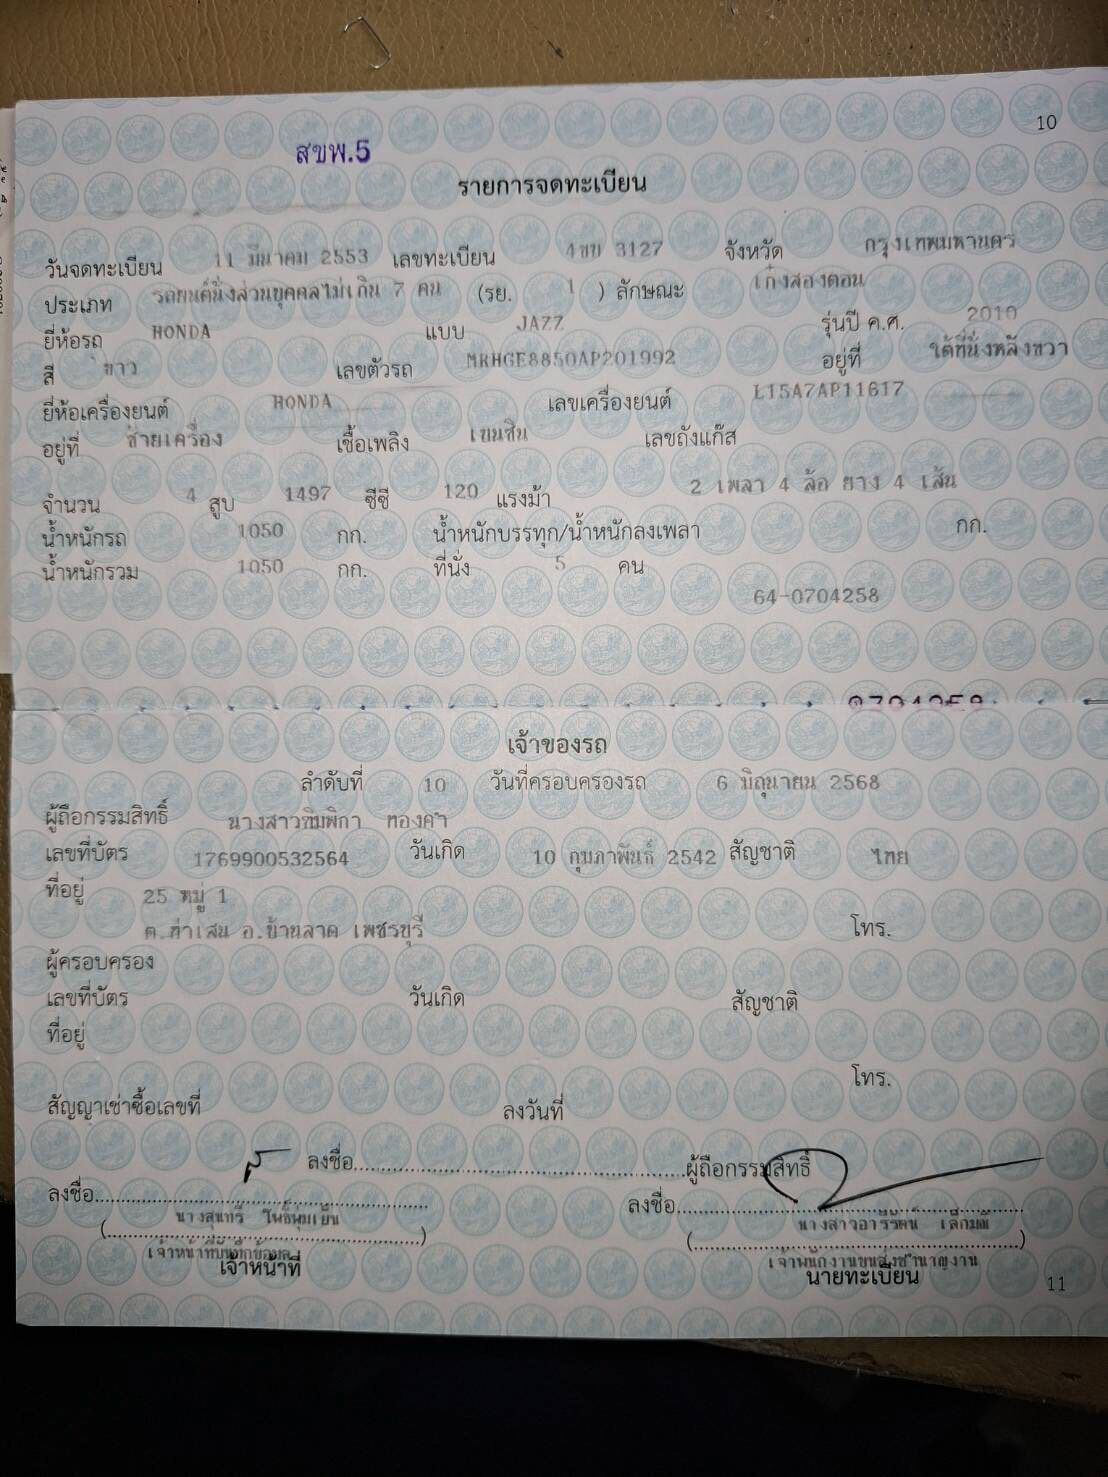 10
สขพ.5
รายการจดทะเบียน
วันจดทะเบียน 11 มีนาคม 2553 เลขทะเบียน 4ขข 3127 จังหวัด กรุงเทพมหานคร
ประเภท รถยนต์นั่งส่วนบุคคลไม่เกิน 7 คน (รย. 1 ) ลักษณะ เก๋งสองตอน
ยี่ห้อรถ HONDA แบบ JAZZ รุ่นปี ค.ศ. 2010
สี ขาว เลขตัวรถ MRHGE8850AP201992 อยู่ที่ ใต้ที่นั่งหลังขวา
ยี่ห้อเครื่องยนต์ HONDA เลขเครื่องยนต์ L15A7AP11617
อยู่ที่ ซ้ายเครื่อง เชื้อเพลิง เบนซิน เลขถังแก๊ส
จำนวน 4 สูบ 1497 ซีซี 120 แรงม้า 2 เพลา 4 ล้อ ยาง 4 เส้น
น้ำหนักรถ 1050 กก. น้ำหนักบรรทุก/น้ำหนักลงเพลา กก.
น้ำหนักรวม 1050 กก. ที่นั่ง 5 คน
64-0704258
เจ้าของรถ
ลำดับที่ 10 วันที่ครอบครองรถ 6 มิถุนายน 2568
ผู้ถือกรรมสิทธิ์ นางสาวพิมพิกา ทองคำ
เลขที่บัตร 1769900532564 วันเกิด 10 กุมภาพันธ์ 2542 สัญชาติ ไทย
ที่อยู่ 25 หมู่ 1
ต.ท่าเสน อ.บ้านลาด เพชรบุรี โทร.
ผู้ครอบครอง
เลขที่บัตร วันเกิด สัญชาติ
ที่อยู่
โทร.
สัญญาเช่าซื้อเลขที่ ลงวันที่
ลงชื่อ ผู้ถือกรรมสิทธิ์
ลงชื่อ ลงชื่อ
นางสุนทรี โพธิ์พุ่มเย็น นางสาวอารีรัตน์ เล็กมณี
เจ้าหน้าที่บันทึกข้อมูล เจ้าพนักงานขนส่งชำนาญงาน
เจ้าหน้าที่ นายทะเบียน
11